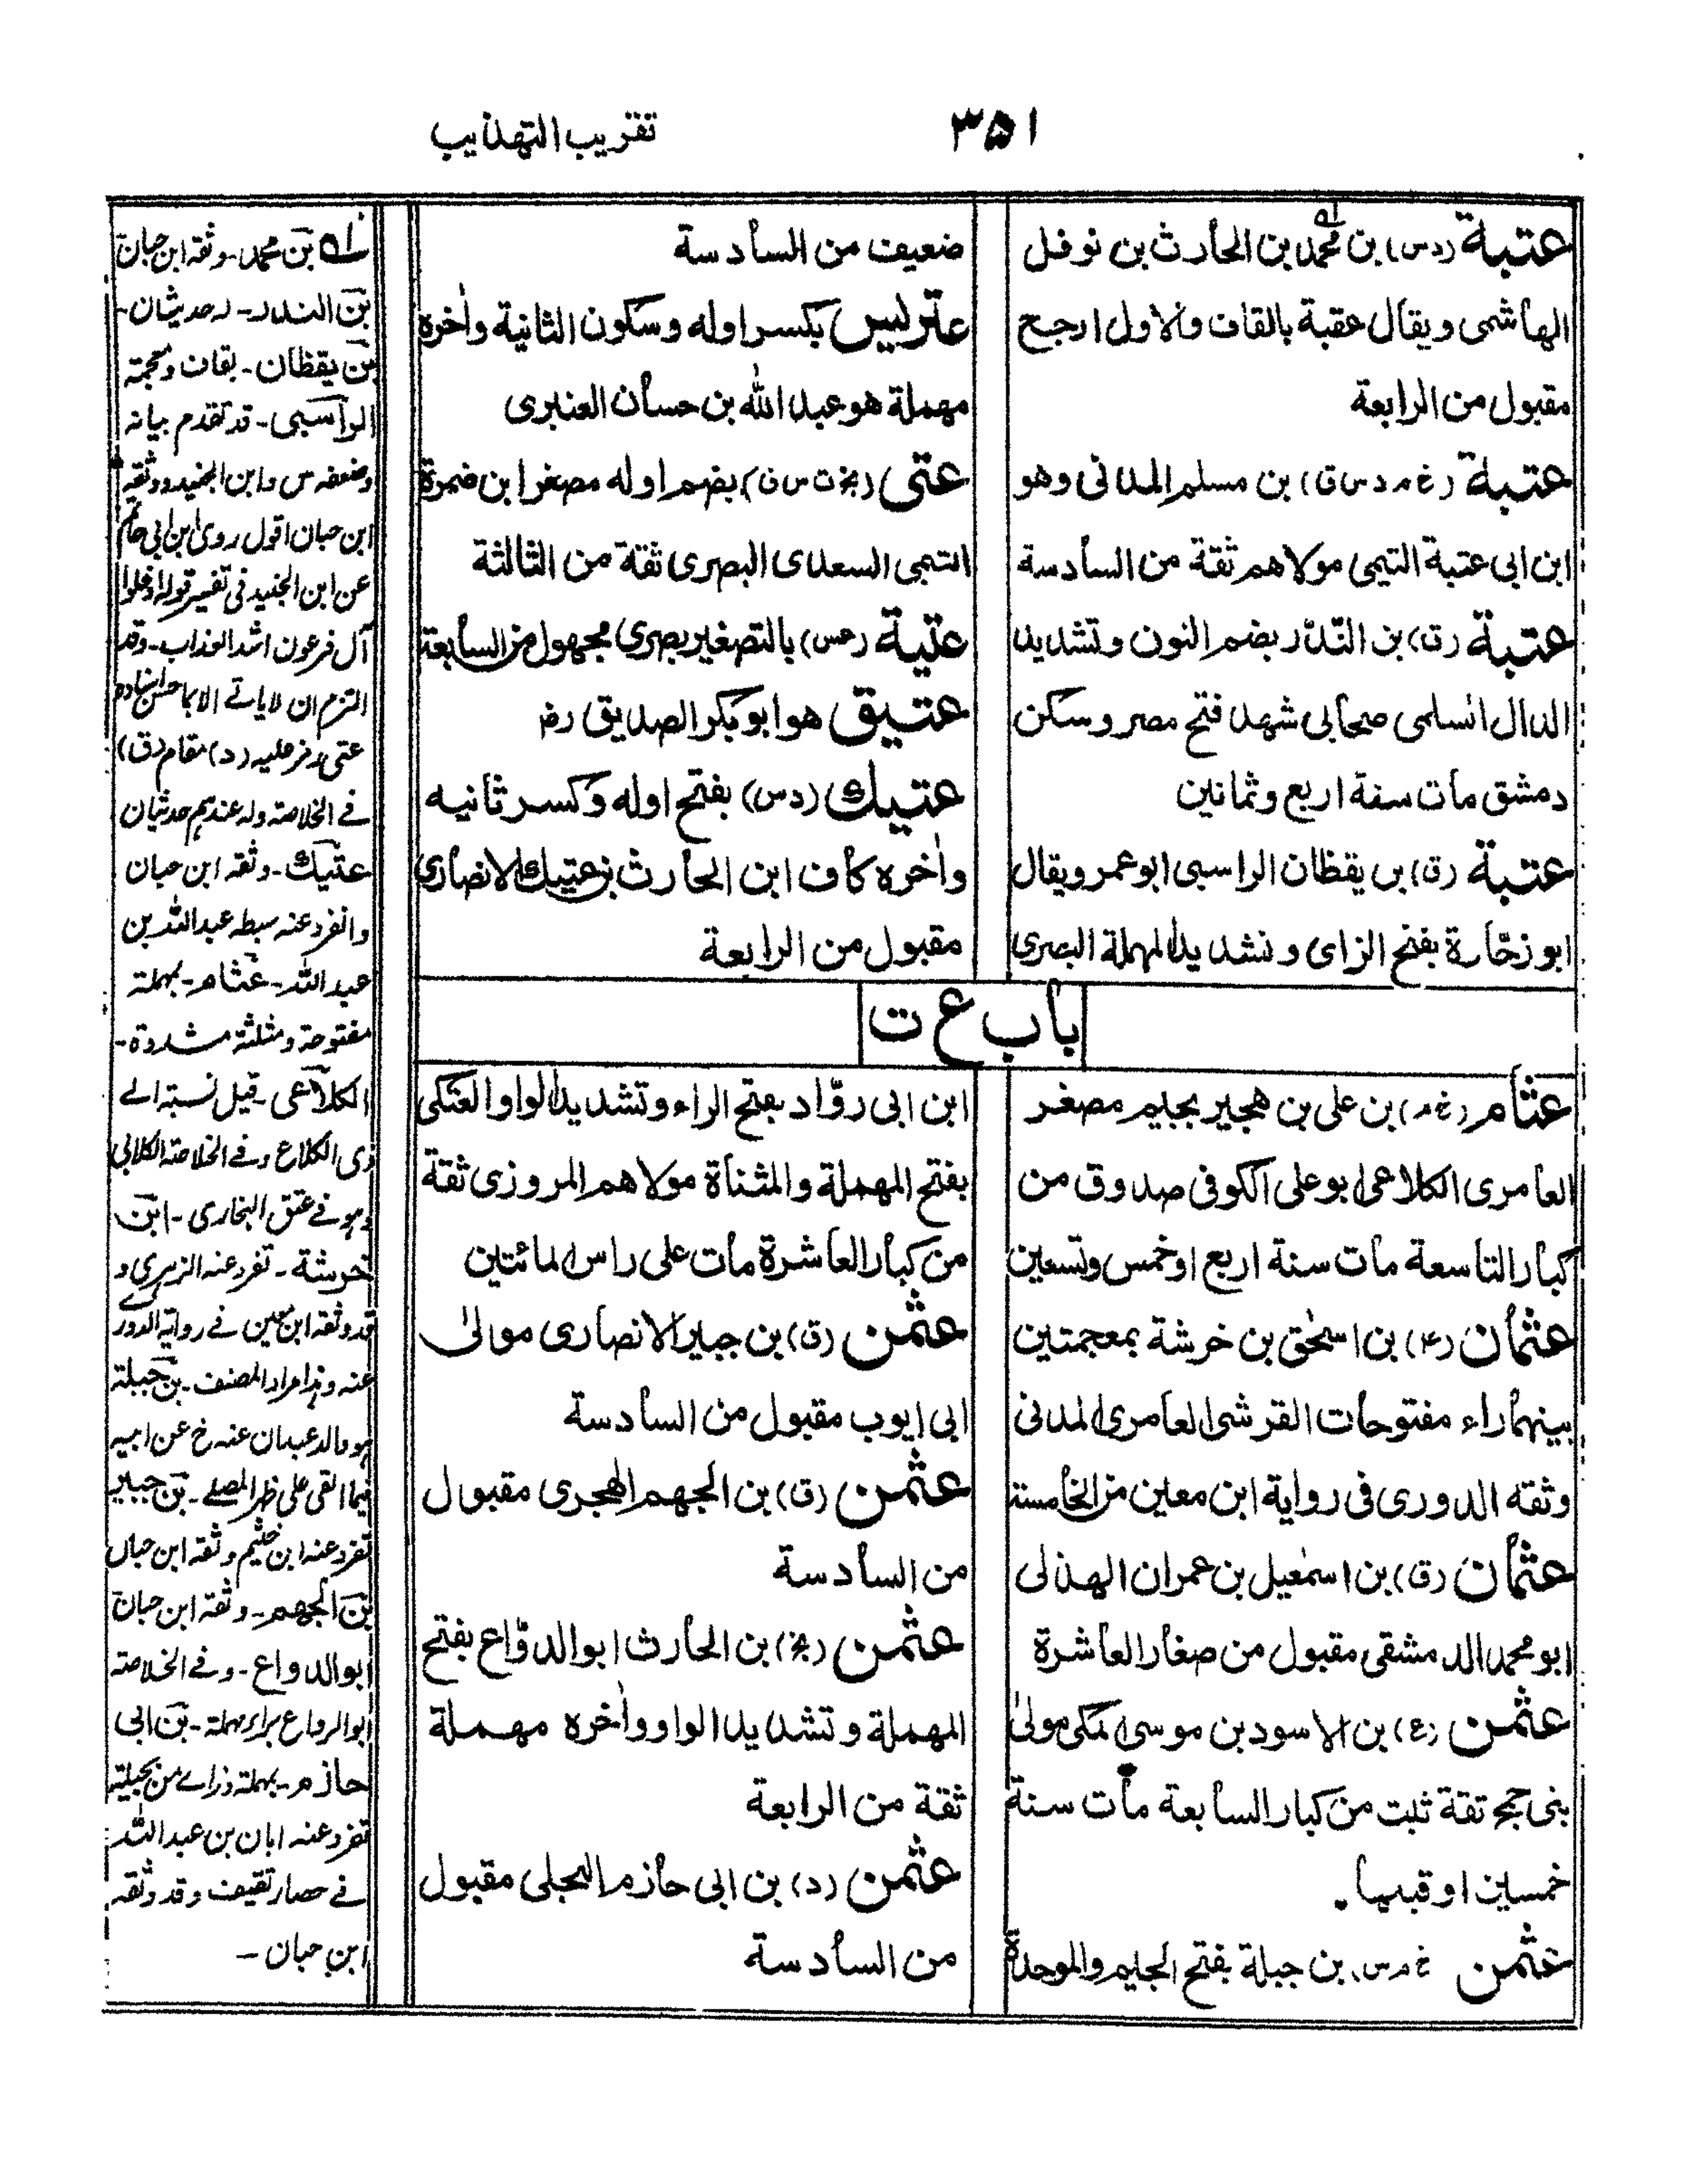 ۳۵۱
تقريب التهذيب
عتبة (دس) بن محمد بن الحارث بن نوفل
الهاشمى ويقال عقبة بالقاف والاول ارجح
مقبول من الرابعة
عتبة (غ م د س ق) بن مسلم المدنى وهو
ابن ابى عتبة التيمى مولاهم ثقة من السادسة
عتبة (ق) بن النّدّر بضم النون وتشديد
الدال السلمى صحابى شهد فتح مصر وسكن
دمشق مات سنة اربع وثمانين
عتبة (ق) بن يقظان الراسبى ابو عمر ويقال
ابو زحّارة بفتح الزاى وتشديد المهملة البصرى
ضعيف من السادسة
عتريس بكسر اوله وسكون الثانية واٰخره
مهملة هو عبد الله بن حسان العنبرى
عتى (بخ ت س ق) بضم اوله مصغر ابن ضمرة
التيمى السعدى البصرى ثقة من الثالثة
عتيبة (عس) بالتصغير بصرى مجهول من السابعة
عتيق هو ابو بكر الصديق رض
عتيك (دس) بفتح اوله وكسر ثانيه
واٰخره كاف ابن الحارث بن عتيك الانصارى
مقبول من الرابعة
باب ع ث
عثام (غ م) بن على بن هجير بجيم مصغر
العامرى الكلاعى ابو على الكوفى صدوق من
كبار التاسعة مات سنة اربع او خمس وتسعين
عثمان (۴) بن اسحٰق بن خرشة بمعجمتين
بينهما راء مفتوحات القرشى العامرى المدنى
وثقه الدورى فى رواية ابن معين من الخامسة
عثمان (ق) بن اسمٰعيل بن عمران الهذلى
ابو محمد الدمشقى مقبول من صغار العاشرة
عثمٰن (ع) بن الاسود بن موسى المكى مولىٰ
بنى جمح ثقة ثبت من كبار السابعة مات سنة
خمسين او قبلها .
عثمٰن غ م س بن جبلة بفتح الجيم والموحدة
ابن ابى روّاد بفتح الراء وتشديد الواو العتكى
بفتح المهملة والمثناة مولاهم المروزى ثقة
من كبار العاشرة مات على راس المائتين
عثمٰن (ق) بن جبير الانصارى مولىٰ
ابى ايوب مقبول من السادسة
عثمٰن (ق) بن الجهم الهجرى مقبول
من السادسة
عثمٰن (بخ) بن الحارث ابو الدوّاع بفتح
المهملة وتشديد الواو واٰخره مهملة
ثقة من الرابعة
عثمٰن (د) بن ابى حازم البجلى مقبول
من السادسة
له بن محمد - وثقه ابن حبان
بن الندر - له حديثان -
بن يقظان - بقاف ومعجمة
الراسبى - قد تقدم بيانه
وضعفه س وابن الجنيد ووثقه
ابن حبان اقول روى ابن ابى حاتم
عن ابن الجنيد فى تفسير قوله ادخلوا
آل فرعون اشد العذاب - وقد
التزم ان لا ياتے الا باحسن اسناده
عتى رمز عليه (د) مقام (ق)
فے الخلاصة وله عندهم حديثان
عتيك - وثقه ابن حبان
وانفرد عنه سبطه عبد الله بن
عبد الله - عثام - بمهملة
مفتوحة ومثلثة مشددة -
الكلاعى - قيل نسبة الے
ذى الكلاع وفے الخلاصة الكلابى
وهو فے عتق البخارى - ابن
خرشة - تفرد عنه الزهرى و
قد وثقه ابن معين فے رواية الدورے
عنه وهذا مراد المصنف - بن جبلة
هو والد عبدان عنه خ عن ابيه
فيما القى على ظهر المصلے - بن جبير
تفرد عنه ابن خثيم وثقه ابن حبان
بن الجهم - وثقه ابن حبان
ابو الدواع - وفے الخلاصة
ابو الرواع براء مهملة - بن ابى
حازم - بمهملة وزاے من بجيلة
تفرد عنه ابان بن عبد الله
فے حصار ثقيف وقد وثقه
ابن حبان -